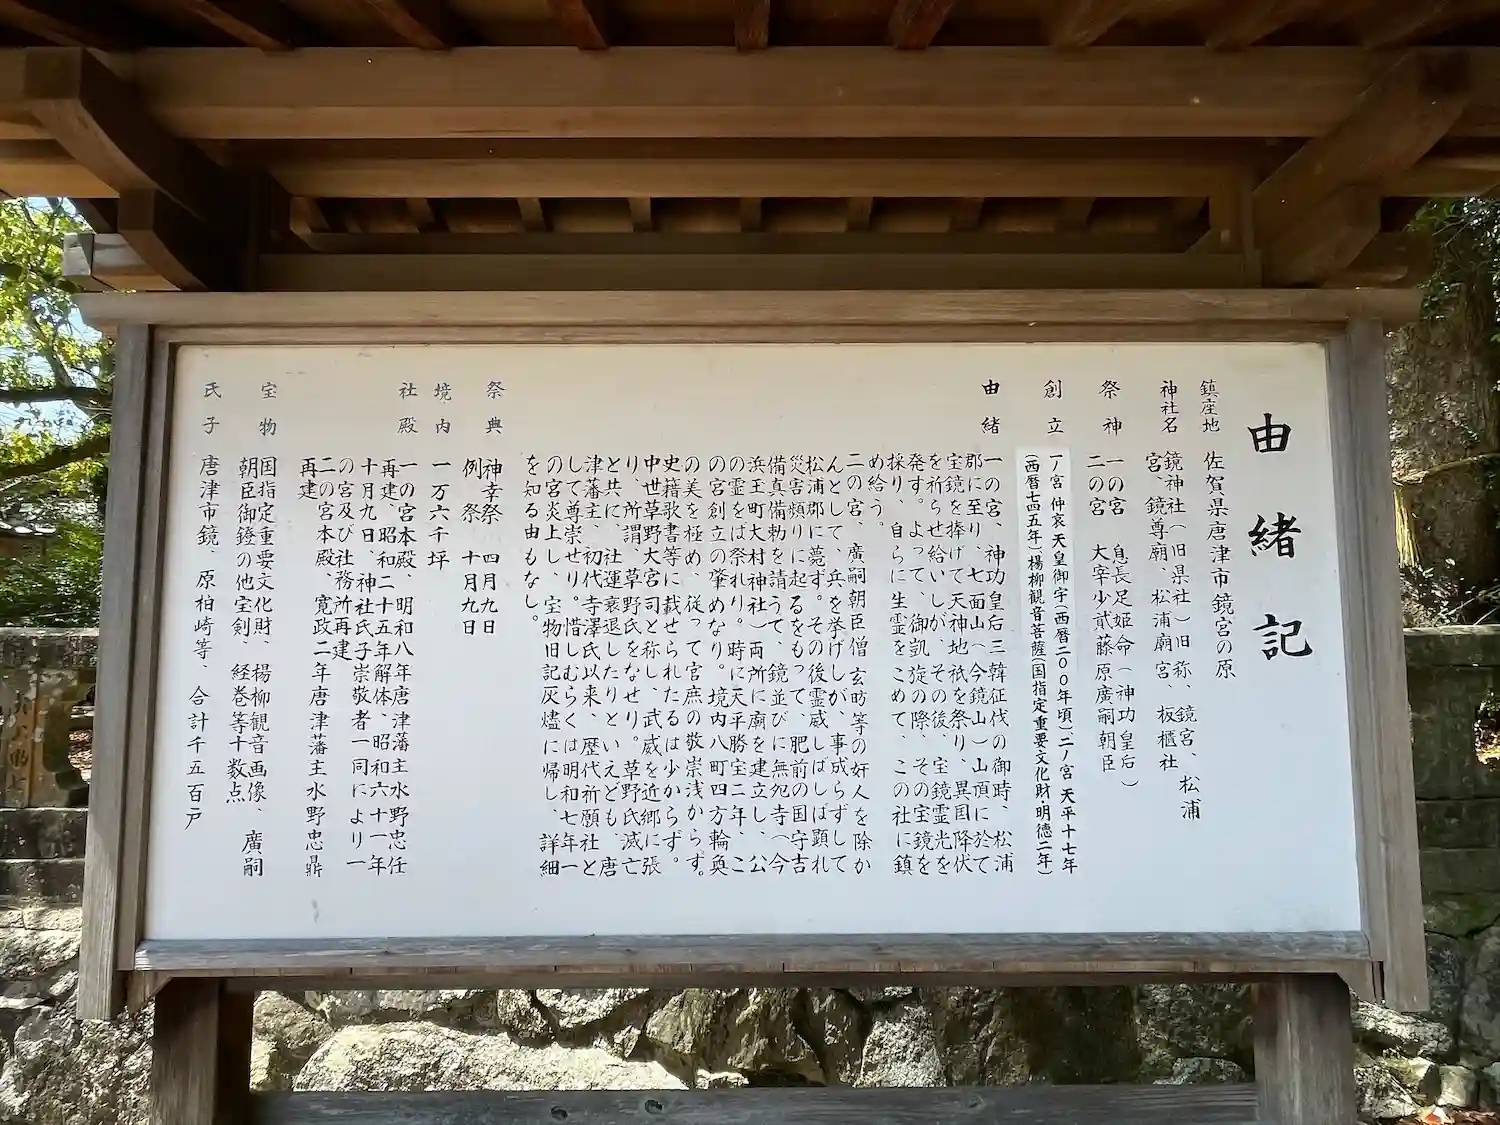 由緒記
鎮座地 佐賀県唐津市鏡宮の原
神社名 鏡神社(旧県社)旧称、鏡宮、松浦
宮、鏡尊廟、松浦廟宮、板櫃社
祭神 一の宮 息長足姫命(神功皇后)
二の宮 大宰少貳藤原廣嗣朝臣
創立 一ノ宮 仲哀天皇御宇(西暦二００年頃)二ノ宮 天平十七年
(西暦七四五年)楊柳観音菩薩(国指定重要文化財・明徳二年)
由緒 一の宮、神功皇后三韓征伐の御時、松浦
郡に至り、七面山(今鏡山)山頂に於て
宝鏡を捧げて天神地祇を祭り、異国降伏
を祈らせ給いしが、その後、宝鏡霊光を
発す。よって、御凱旋の際、その宝鏡を
採り、自らに生霊をこめて、この社に鎮
め給う。
二の宮、廣嗣朝臣僧玄昉等の奸人を除か
んとして、兵を挙げしが、事成らずして
松浦郡に薨ず。その後霊威しばしば顕れ
災害頻りに起るをもって、肥前の国守吉
備真備勅を請うて、鏡並びに無怨寺(今
浜玉町大村神社)両所に廟を建立し、公
の霊をば祭れり。時に天平勝宝二年、こ
の宮創立の肇めなり。境内八町四方輪奐
の美を極め、従って宮庶の敬崇浅からず。
史籍歌書等に載せられたるは少からず。
中世草野大宮司と称し、武威を近郷に張
り、所謂、草野氏をなせり。草野氏滅亡
と共に、社運衰退したりといえども、唐
津藩主、初代寺澤氏以来、歴代祈願社と
して尊崇せり。惜しむらくは明和七年一
の宮炎上し、宝物旧記灰燼に帰し、詳細
を知る由もなし。
祭典 神幸祭 四月九日
例祭 十月九日
境内 一万六千坪
社殿 一の宮本殿、明和八年唐津藩主水野忠任
再建、昭和二十五年解体、昭和六十一年
十月九日、神社氏子崇敬者一同により一
の宮及び社務所再建
二の宮本殿、寛政二年唐津藩主水野忠鼎
再建
宝物 国指定重要文化財、楊柳観音画像、廣嗣
朝臣御鐙の他宝剣、経巻等十数点
氏子 唐津市鏡、原柏崎等、合計千五百戸